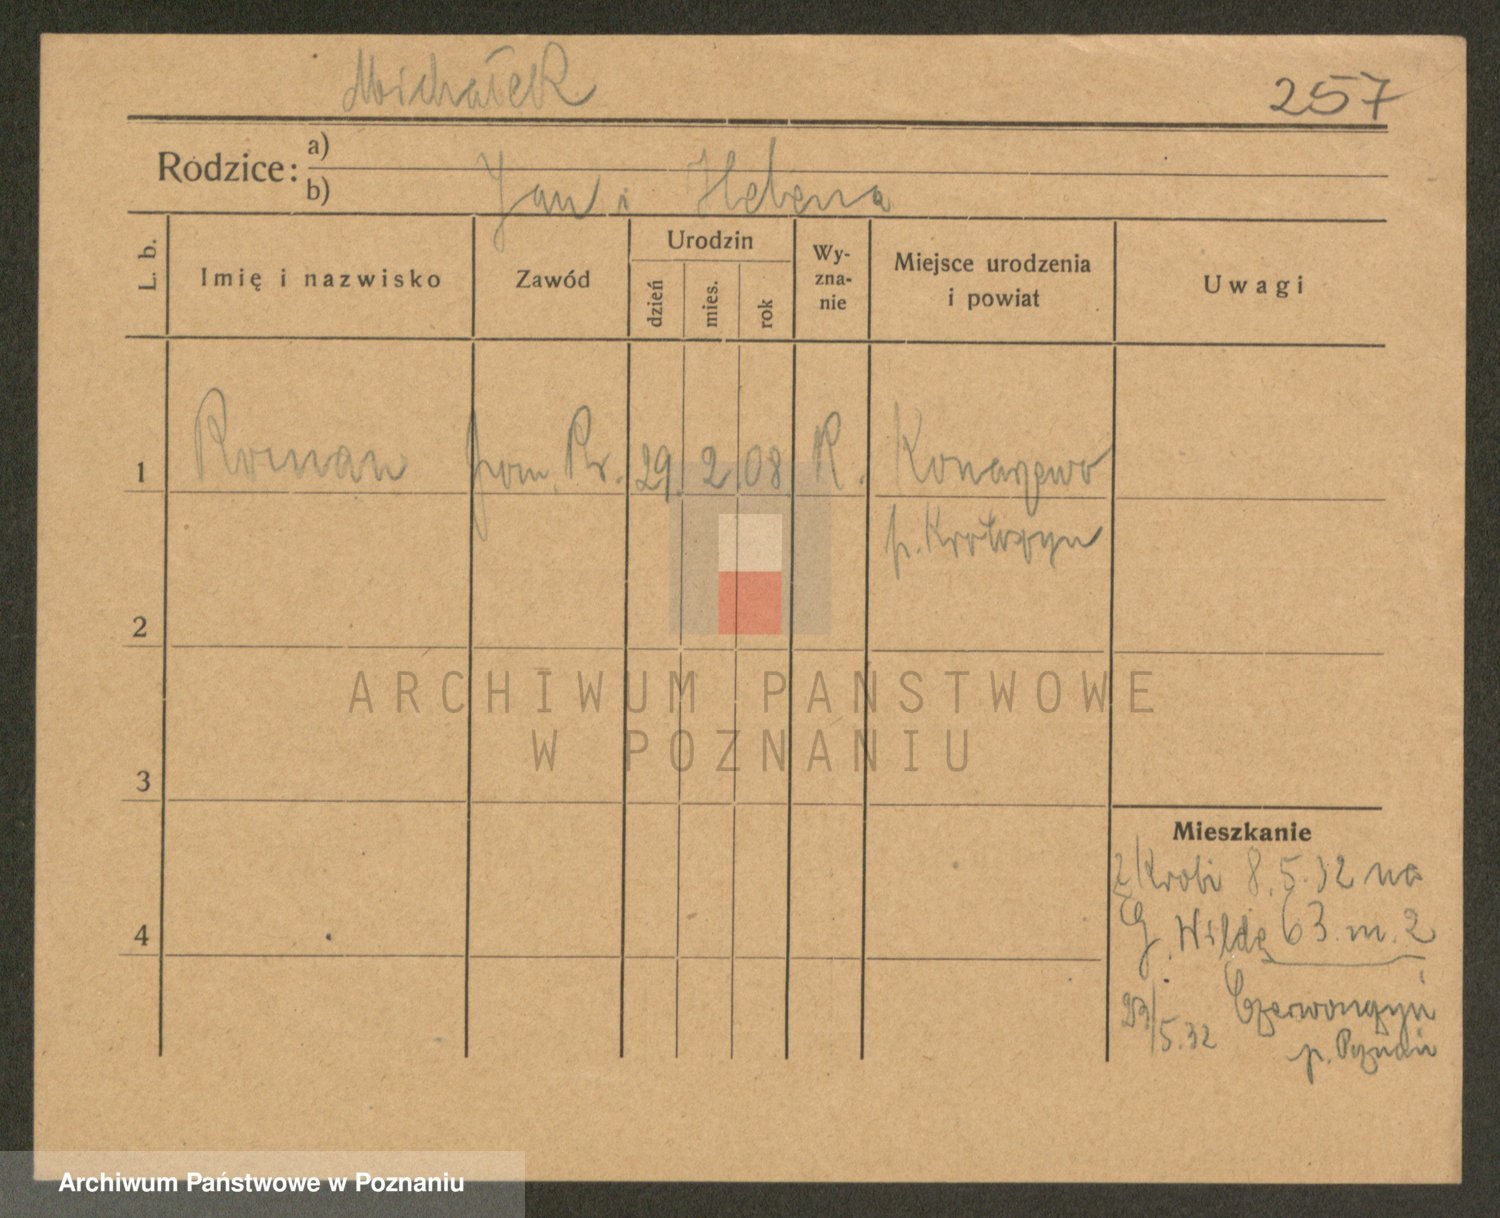 Michałek
257
Rodzice: a)
b) Jan i Helena
L. b.
Imię i nazwisko
Zawód
Urodzin
dzień
mies.
rok
Wy-
zna-
nie
Miejsce urodzenia
i powiat
Uwagi
1 Roman pom. 29. 2. 08 R. Konarzewo
p. Krotoszyn
2
ARCHIWUM PAŃSTWOWE
W POZNANIU
3
Mieszkanie
z Krobi 8.5.32 na
G. Wildę 63 m. 2
4
23/5.32
p. Poznań
Archiwum Państwowe w Poznaniu